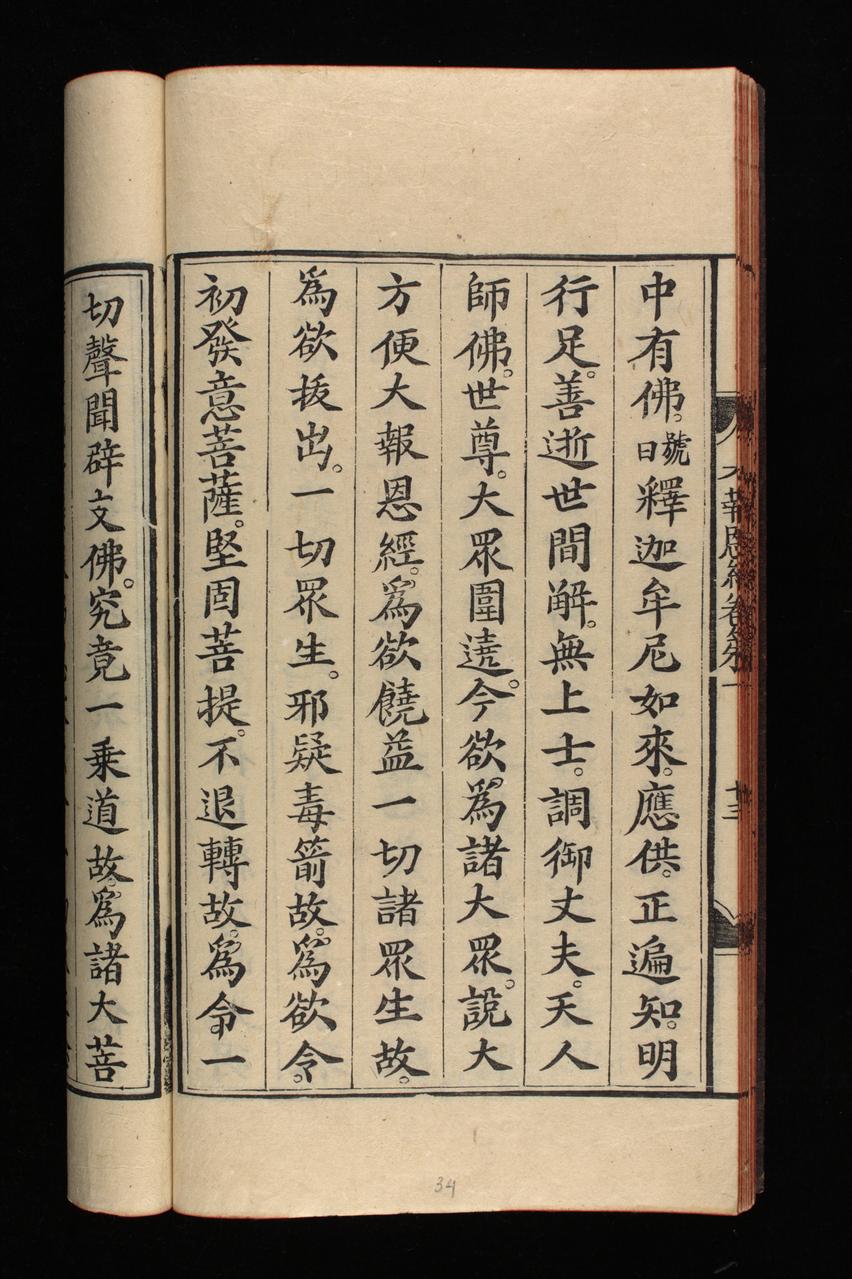 大報恩經卷第一 十三
中有佛。號曰釋迦牟尼如來。應供。正遍知。明
行足。善逝世間解。無上士。調御丈夫。天人
師佛。世尊。大眾圍遶。今欲為諸大眾。說大
方便大報恩經。為欲饒益一切諸眾生故。
為欲拔出。一切眾生。邪疑毒箭故。為欲令。
初發意菩薩。堅固菩提。不退轉故。為令一
切聲聞辟支佛。究竟一乘道故。為諸大菩
34